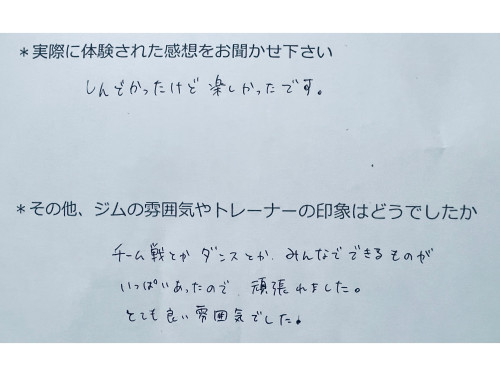 ＊実際に体験された感想をお聞かせ下さい
しんどかったけど楽しかったです。
＊その他、ジムの雰囲気やトレーナーの印象はどうでしたか
チーム戦とかダンスとか、みんなでできるものが
いっぱいあったので、頑張れました。
とても良い雰囲気でした！